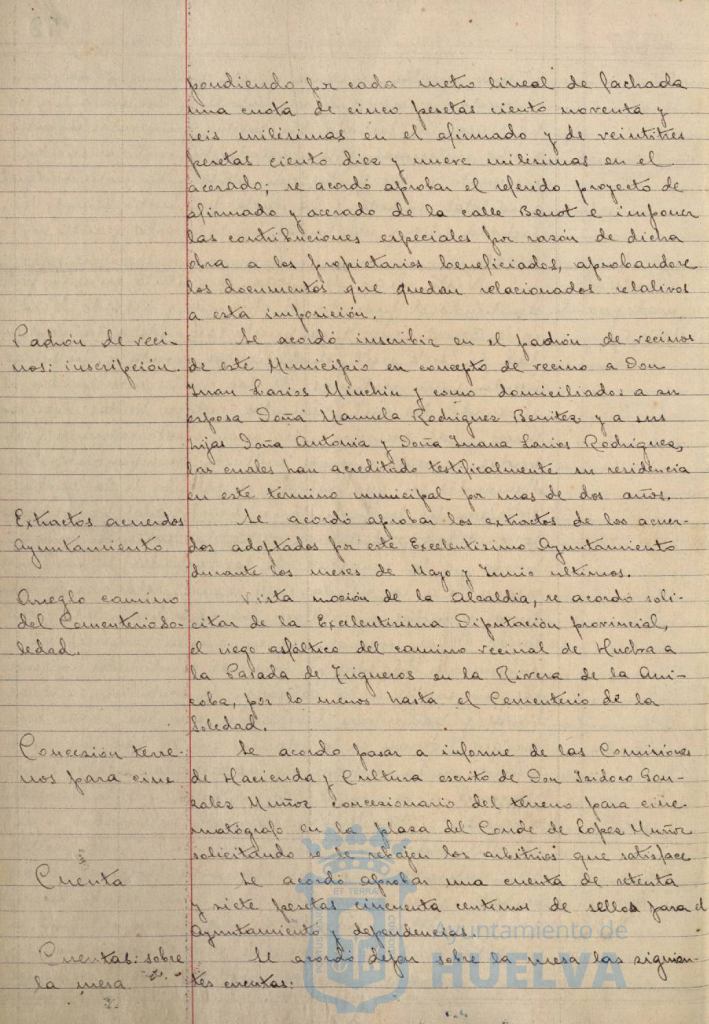 pondiendo por cada metro lineal de fachada
una cuota de cinco pesetas ciento noventa y
seis milésimas en el afirmado y de veintitres
pesetas ciento diez y nueve milésimas en el
acerado; se acordó aprobar el referido proyecto de
afirmado y acerado de la calle Benot e imponer
las contribuciones especiales por razón de dicha
obra a los propietarios beneficiados, aprobandose
los documentos que quedan relacionados relativos
a esta imposición.
Padrón de veci-
nos: inscripción.
Se acordó inscribir en el padrón de vecinos
de este Municipio en concepto de vecino a Don
Juan Larios Minchin y como domiciliados a su
esposa Doña Manuela Rodriguez Benitez y a sus
hijas Doña Antonia y Doña Juana Larios Rodriguez,
las cuales han acreditado testificalmente su residencia
en este término municipal por mas de dos años.
Extractos acuerdos
Ayuntamiento
Se acordó aprobar los extractos de los acuer-
dos adoptados por este Excelentisimo Ayuntamiento
durante los meses de Mayo y Junio ultimos.
Arreglo camino
del Cementerio So-
ledad.
Vista moción de la Alcaldia, se acordó soli-
citar de la Excelentisima Diputación provincial,
el riego asfáltico del camino vecinal de Huelva a
la Parada de Trigueros en la Rivera de la Ani-
coba, por lo menos hasta el Cementerio de la
Soledad.
Concesión terre-
nos para cine
Se acordo pasar a informe de las Comisiones
de Hacienda y Cultura escrito de Don Isidoro Gon-
zalez Muñoz concesionario del terreno para cine-
matógrafo en la plaza del Conde de López Muñoz
solicitando se le rebajen los arbitrios que satisface
Cuenta
Se acordó aprobar una cuenta de setenta
y siete pesetas cincuenta centimos de sellos para el
Ayuntamiento y dependencias.
Cuentas: sobre
la mesa
Se acordó dejar sobre la mesa las siguien-
tes cuentas:
Ayuntamiento de
HUELVA